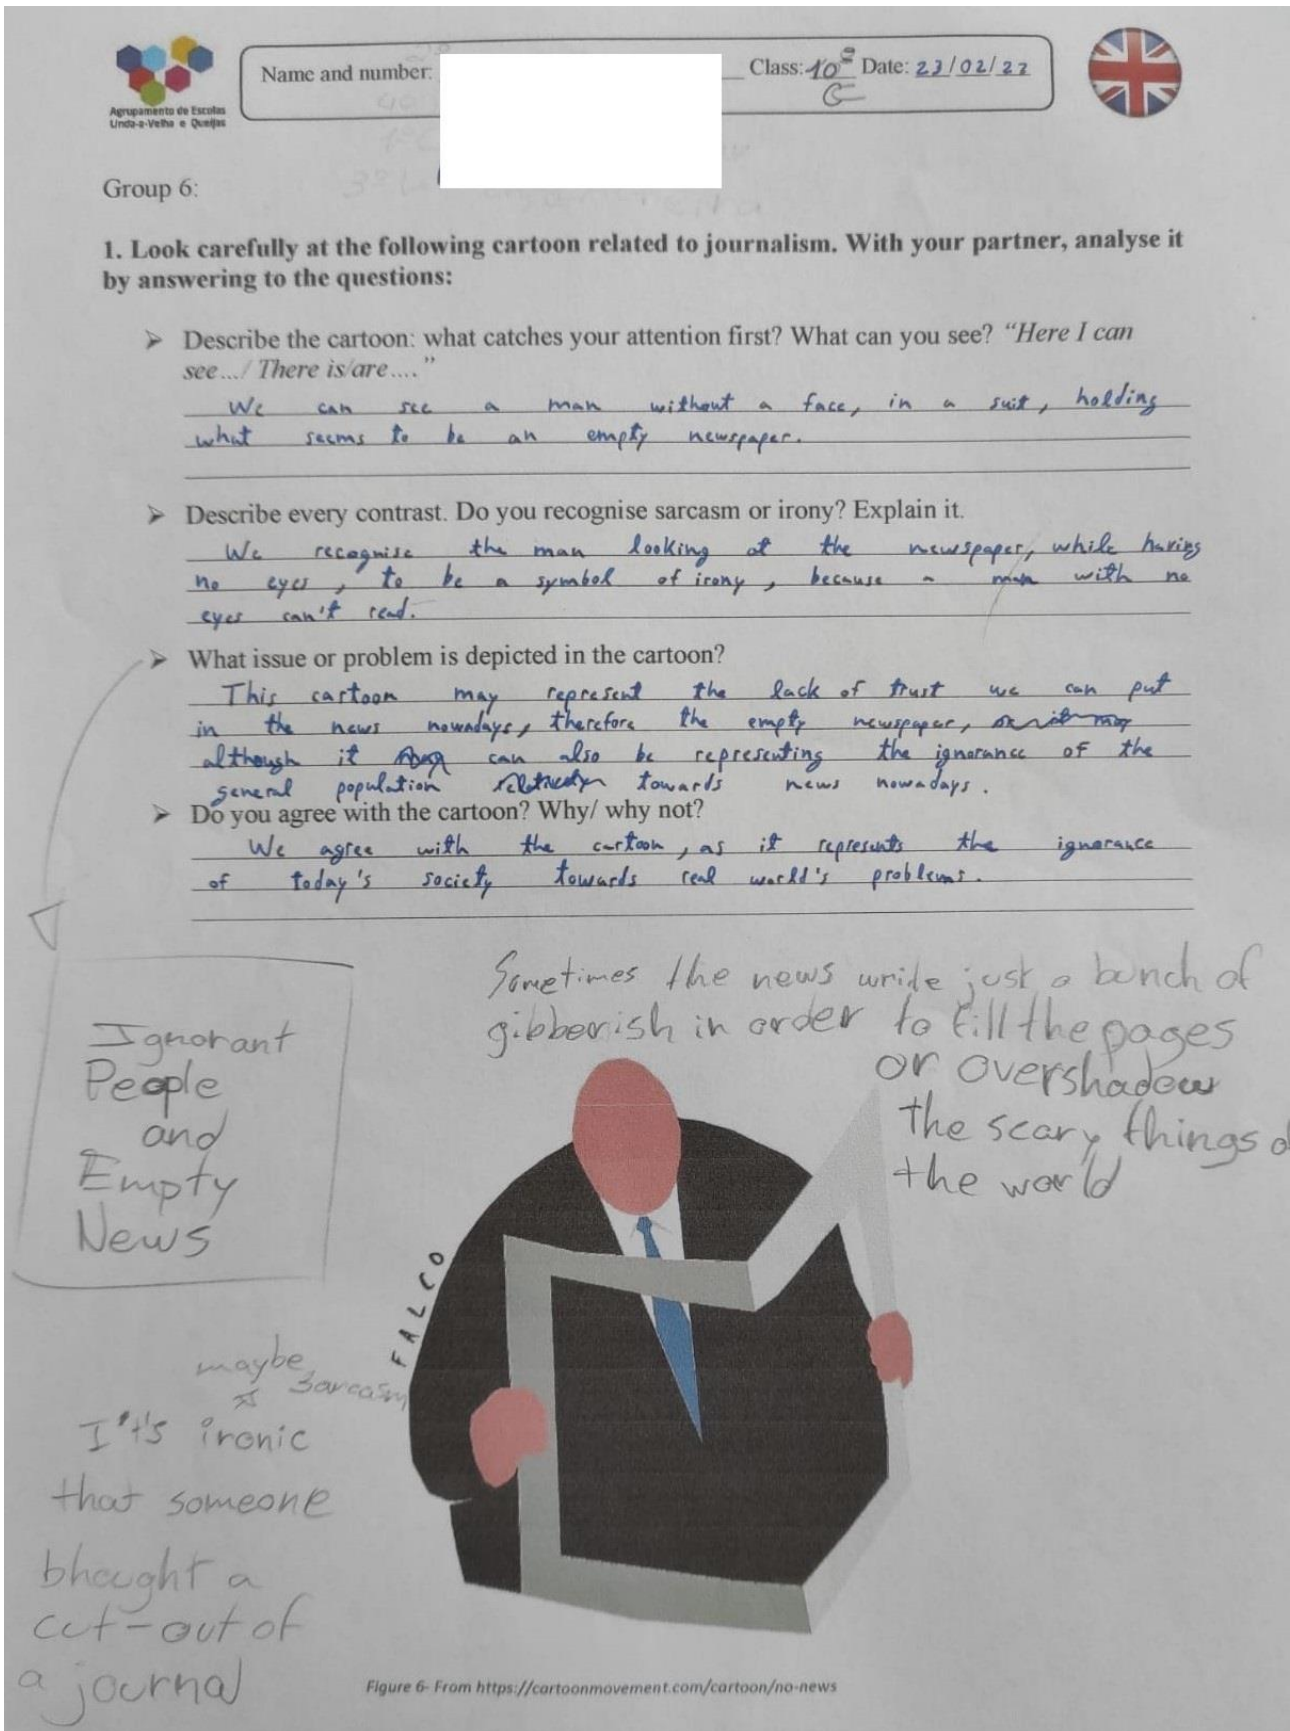 Agrupamento de Escolas
Linda-a-Velha e Queijas
Name and number:
Class: 10º Date: 23/02/22
C
Group 6:
1. Look carefully at the following cartoon related to journalism. With your partner, analyse it
by answering to the questions:
➢ Describe the cartoon: what catches your attention first? What can you see? “Here I can
see.../ There is/are....”
We can see a man without a face, in a suit, holding
what seems to be an empty newspaper.
➢ Describe every contrast. Do you recognise sarcasm or irony? Explain it.
We recognise the man looking at the newspaper, while having
no eyes, to be a symbol of irony, because a man with no
eyes can't read.
➢ What issue or problem is depicted in the cartoon?
This cartoon may represent the lack of trust we can put
in the news nowadays, therefore the empty newspaper, or it may
although it can also be representing the ignorance of the
general population towards news nowadays.
➢ Do you agree with the cartoon? Why/ why not?
We agree with the cartoon, as it represents the ignorance
of today's society towards real world's problems.
Sometimes the news write just a bunch of
gibberish in order to fill the pages
or overshadow
the scary things o
the world
Ignorant
People
and
Empty
News
FALCO
maybe
sarcasm
I't's ironic
that someone
bhought a
cut-out of
a journal
Figure 6- From https://cartoonmovement.com/cartoon/no-news